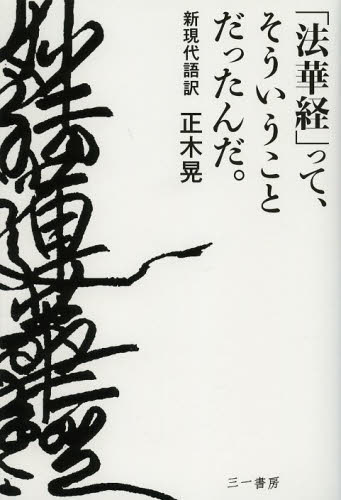 「法華経」って、
そういうこと
だったんだ。
新現代語訳 正木晃
妙法蓮華経
三一書房